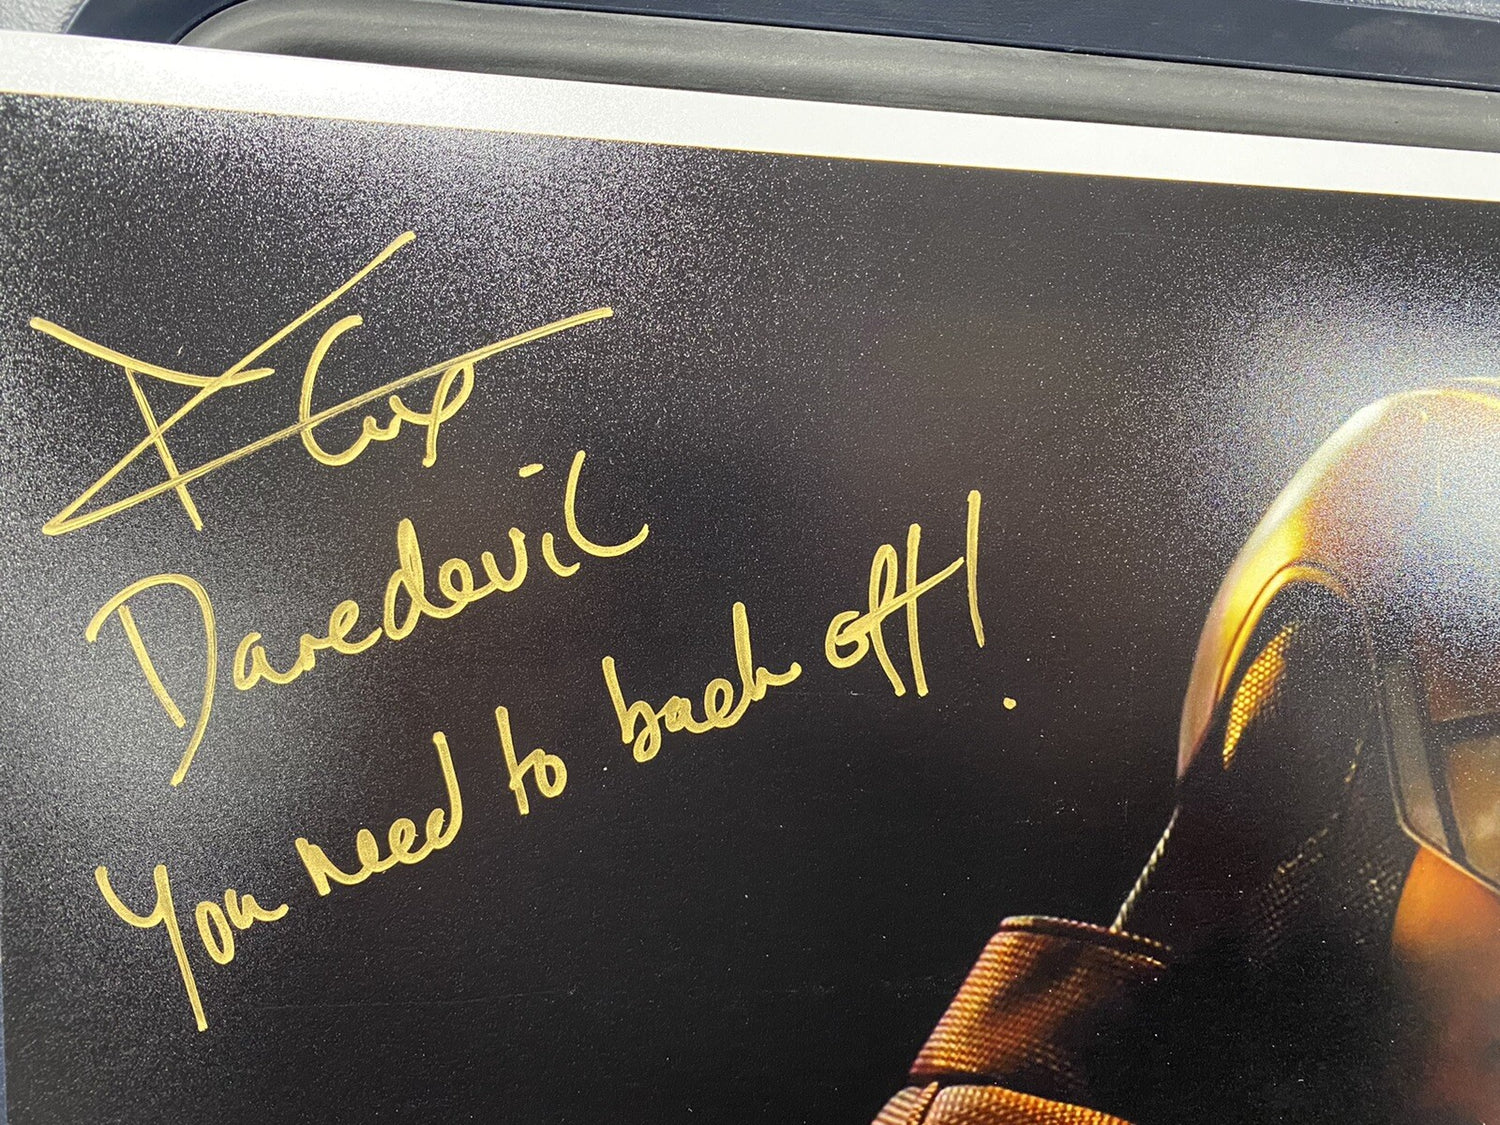 Daredevil
You need to back off!